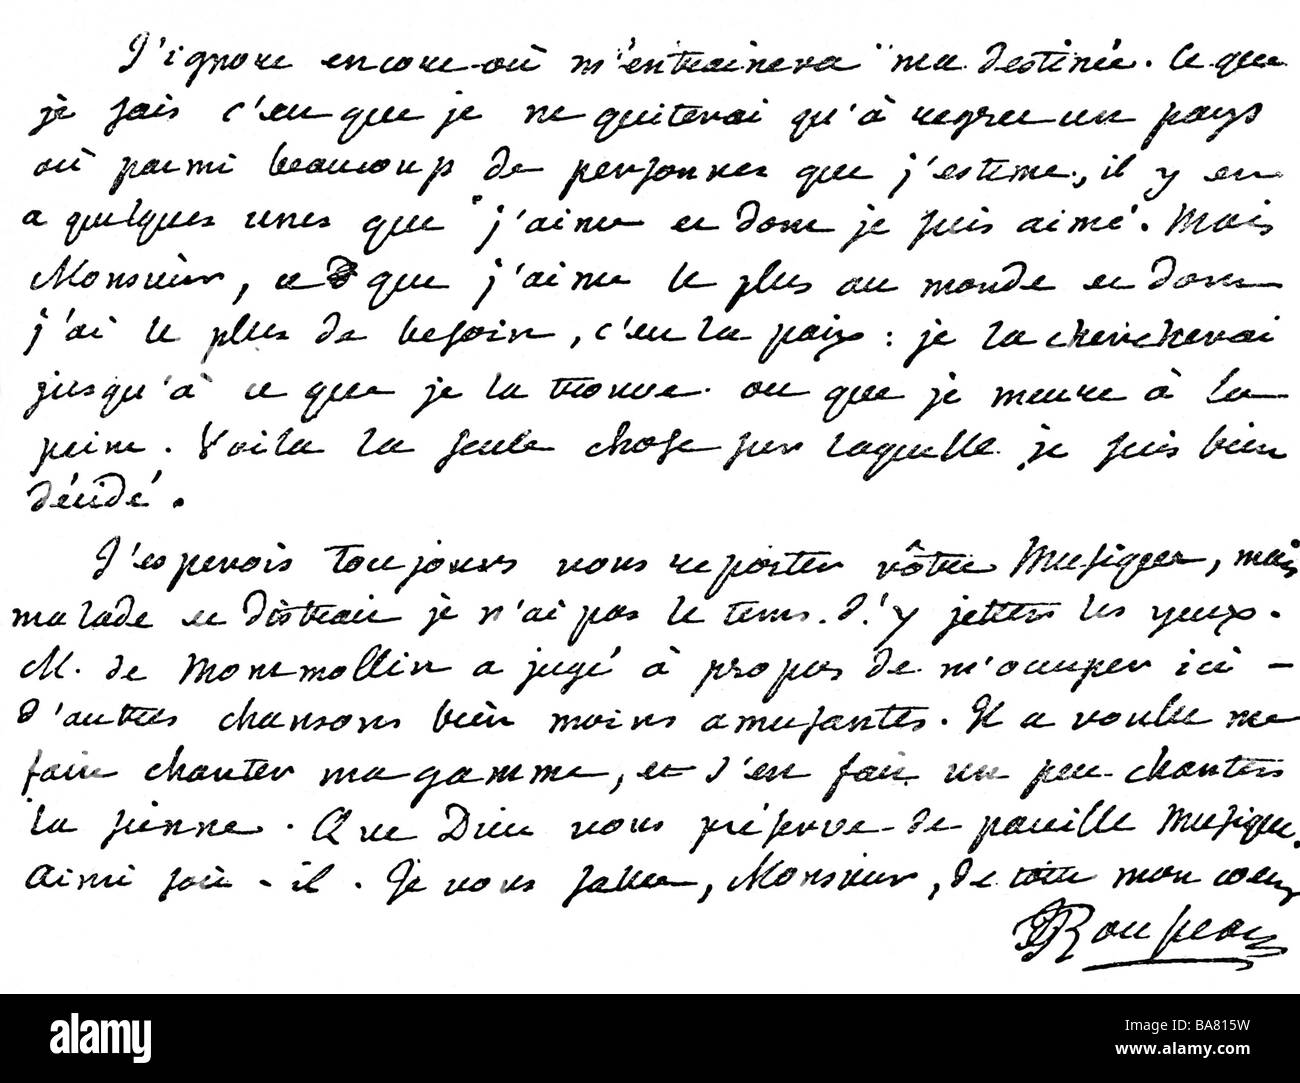 J'ignore encore où m'entrainera ma destinée. Ce que
je sais c'est que je ne quiterai qu'à regret un pays
où parmi beaucoup de personnes que j'estime, il y en
a quelques unes que j'aime et dont je suis aimé. Mais
Monsieur, ce que j'aime le plus au monde et dont
j'ai le plus de besoin, c'est la paix : je la chercherai
jusqu'à ce que je la trouve ou que je meure à la
peine. Voila la seule chose sur laquelle je suis bien
décidé.
J'esperois toujours vous reporter vôtre Musique, mais
malade et distrait je n'ai pas le tems d'y jetter les yeux.
M. de Montmollin a jugé à propos de m'occuper ici -
d'autres chansons bien moins amusantes. Il a voulu me
faire chanter ma gamme, et s'est fait un peu chanter
la sienne. Que Dieu vous préserve de pareille Musique.
Ainsi soit-il. Je vous salue, Monsieur, de tout mon coeur
JJRousseau
alamy
Image ID: BA815W
www.alamy.com
a
alamy